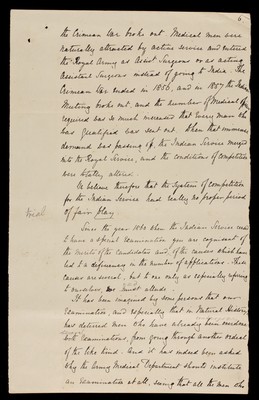 6
the Crimean War broke out. Medical men were
naturally attracted by active service and entered
the Royal Army as Assist Surgeons or as acting
Assistant Surgeons instead of going to India. The
Crimean War ended in 1856, and in 1857 the Indian
Mutiny broke out, and the number of Medical
required was so much increased that every man who
was qualified was sent out. When that immense
demand was passing off, the Indian Service merged
into the Royal Service, and the conditions of competition
were totally altered.
We believe therefore that the system of competition
for the Indian Service had really no proper period
trial
of fair play
Since the year 1860 when the Indian Service
I have a special Examination you are cognisant of
the merits of the Candidates and of the causes which have
led to a deficiency in the number of applications. These
causes are several, but to one only as especially referring
to ourselves, we must allude.
It has been imagined by some persons that our
Examination, and especially that in Natural History
has deterred men who have already been
Examinations, from going through another ordeal
of the like kind. And it has indeed been asked
why the Army Medical Department should institute
an Examination at all, seeing that all the men who